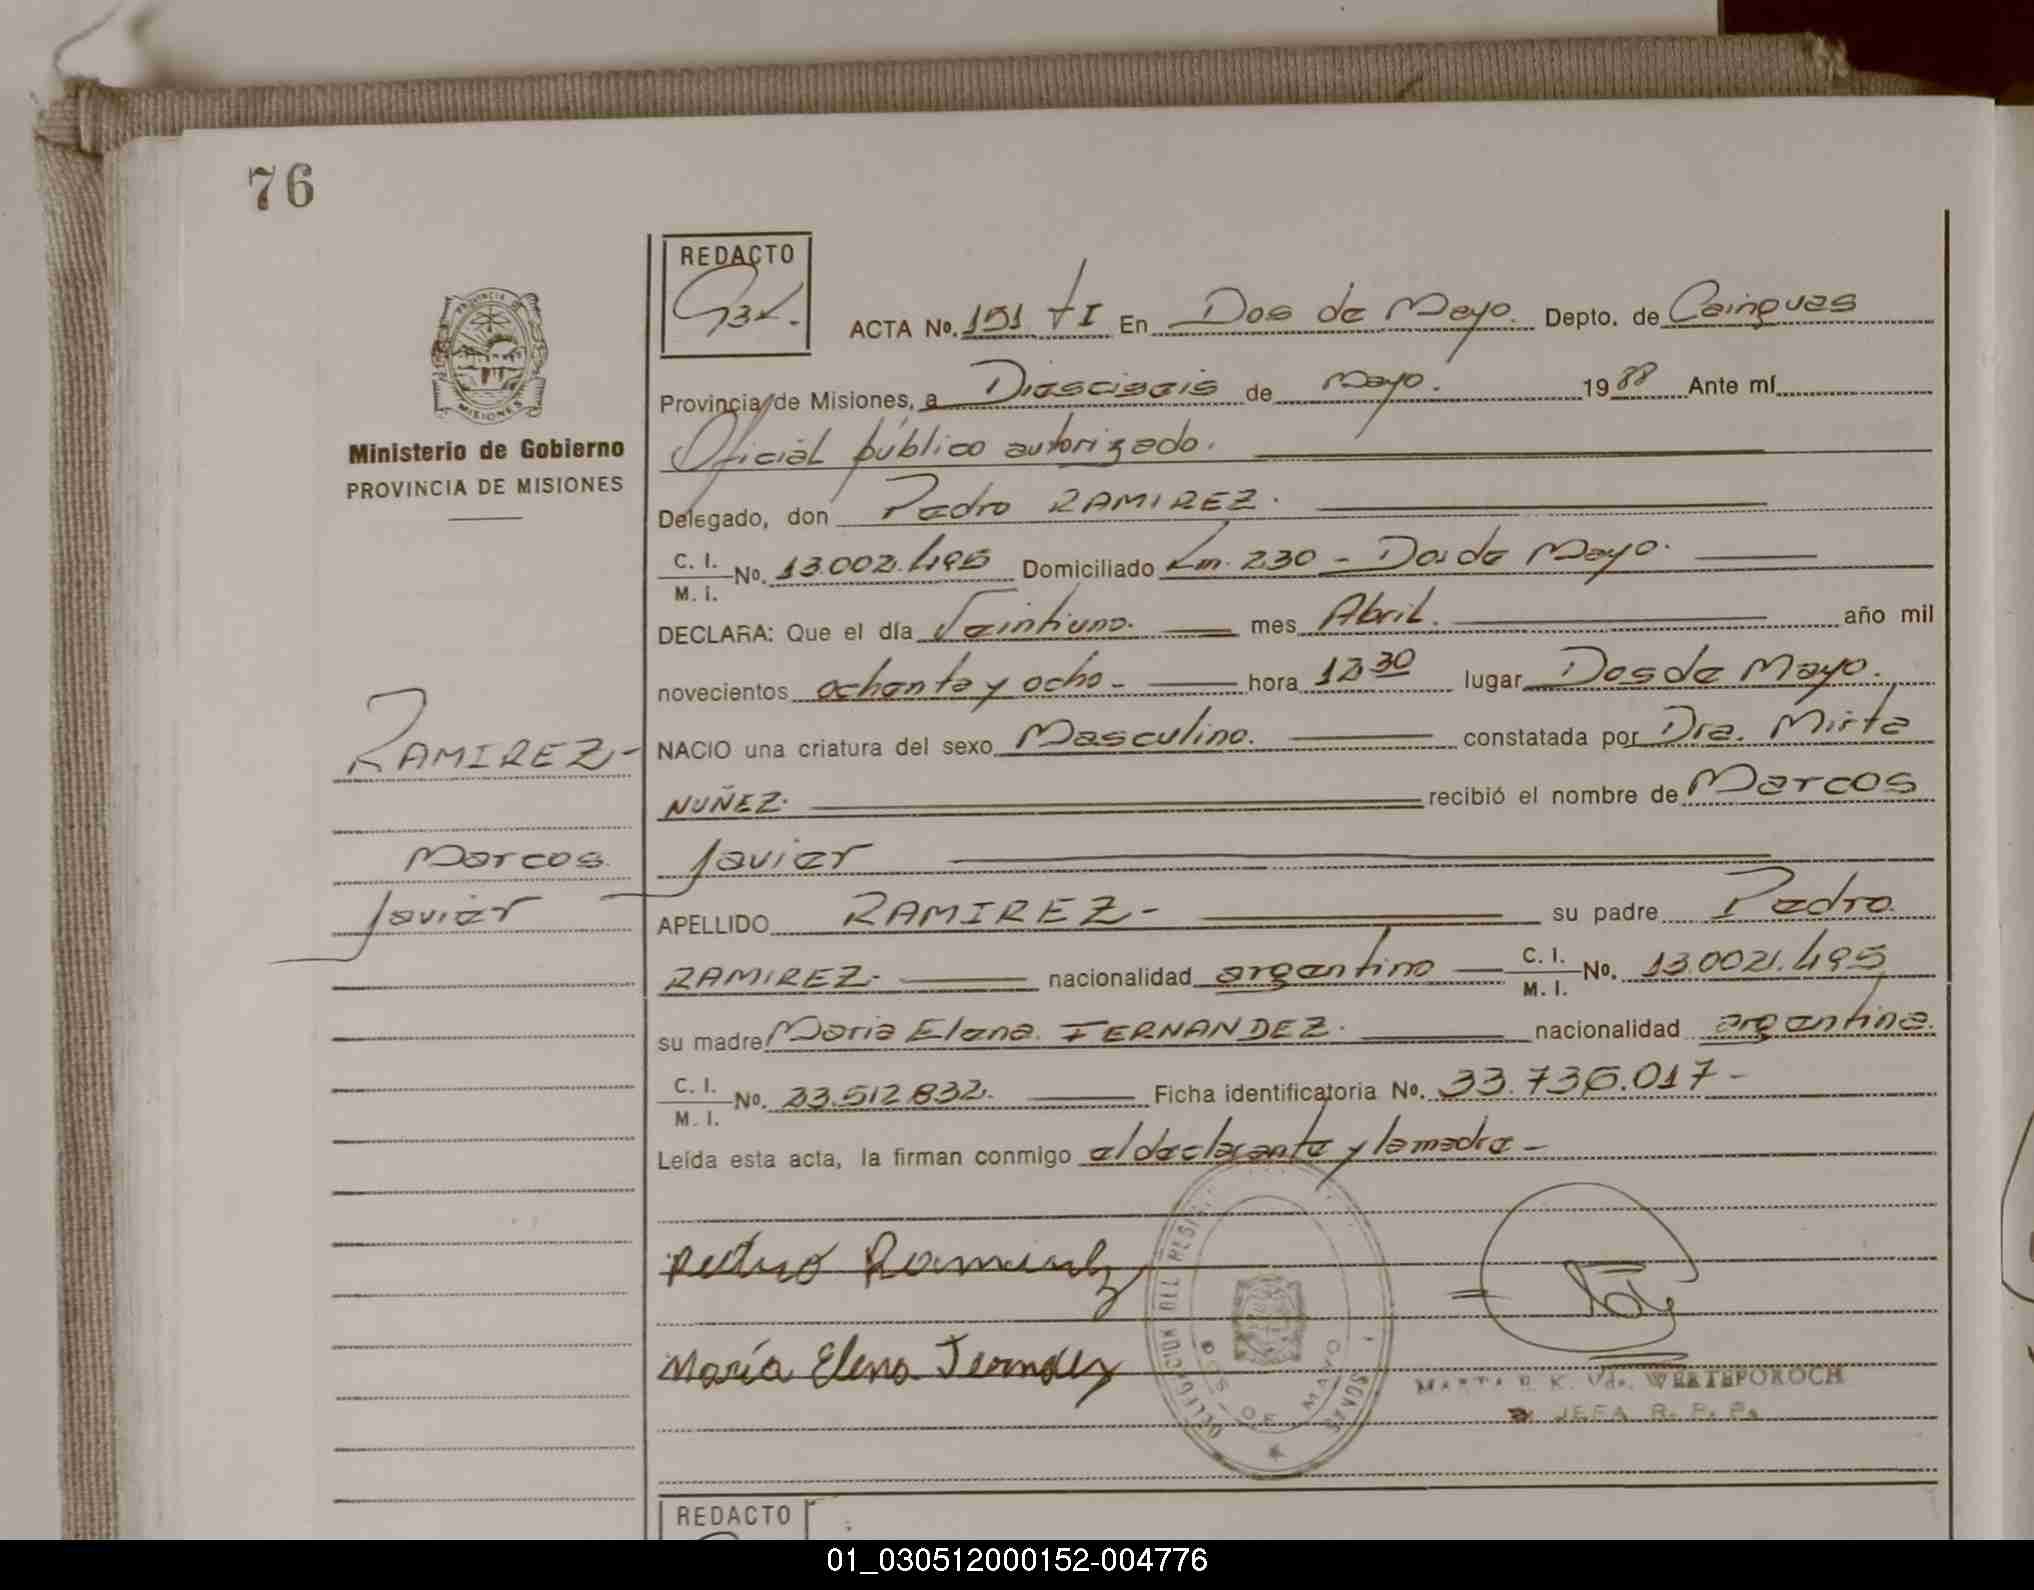 76
REDACTO
ACTA No. 151 TI En Dos de Mayo. Depto. de Cainguas
Provincia de Misiones, a Dieciseis de Mayo. 1988 Ante mí
Oficial público autorizado.
Delegado, don Pedro RAMIREZ.
C. I.
M. I. No. 13.002.495 Domiciliado Km. 230 - Dos de Mayo.
DECLARA: Que el día Veintiuno. mes Abril. año mil
novecientos ochenta y ocho - hora 12 30 lugar Dos de Mayo.
NACIO una criatura del sexo Masculino. constatada por Dra. Mirta
NUÑEZ. recibió el nombre de Marcos
Javier
APELLIDO RAMIREZ - su padre Pedro
RAMIREZ - nacionalidad argentino C. I.
M. I. No. 13.002.495
su madre Maria Elena FERNANDEZ. nacionalidad argentina.
C. I.
M. I. No. 23.512.832. Ficha identificatoria No. 33.736.017 -
Leída esta acta, la firman conmigo el declarante y la madre -
Pedro Ramirez
María Elena Fernandez
DELEGACION DEL
DOS DE MAYO
WERTEPOROCH
JEFA R. P. Ps.
PROVINCIA DE
MISIONES
Ministerio de Gobierno
PROVINCIA DE MISIONES
RAMIREZ -
Marcos
Javier
REDACTO
01_030512000152-004776